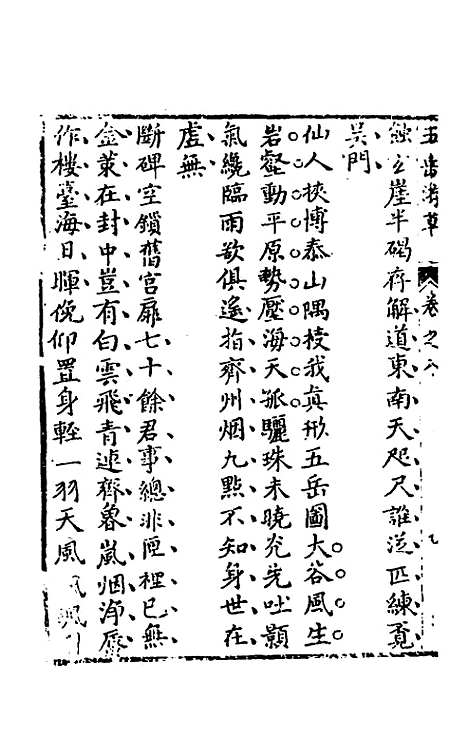 五岳游草 卷之八 九
蝕之崖半碣存解道東南天咫尺誰從匹練覓
吳門
仙人挾博泰山隅授我真形五岳圖大谷風生
岩壑動平原勢壓海天孤驪珠未曉光先吐顥
氣纔臨雨欲俱遙指齊州烟九點不知身世在
虛無
斷碑空鎖舊宮扉七十餘君事總非匣裡已無
金策在封中豈有白雲飛青連齊魯嵐烟淨蜃
作樓臺海日暉俛仰置身輕一羽天風